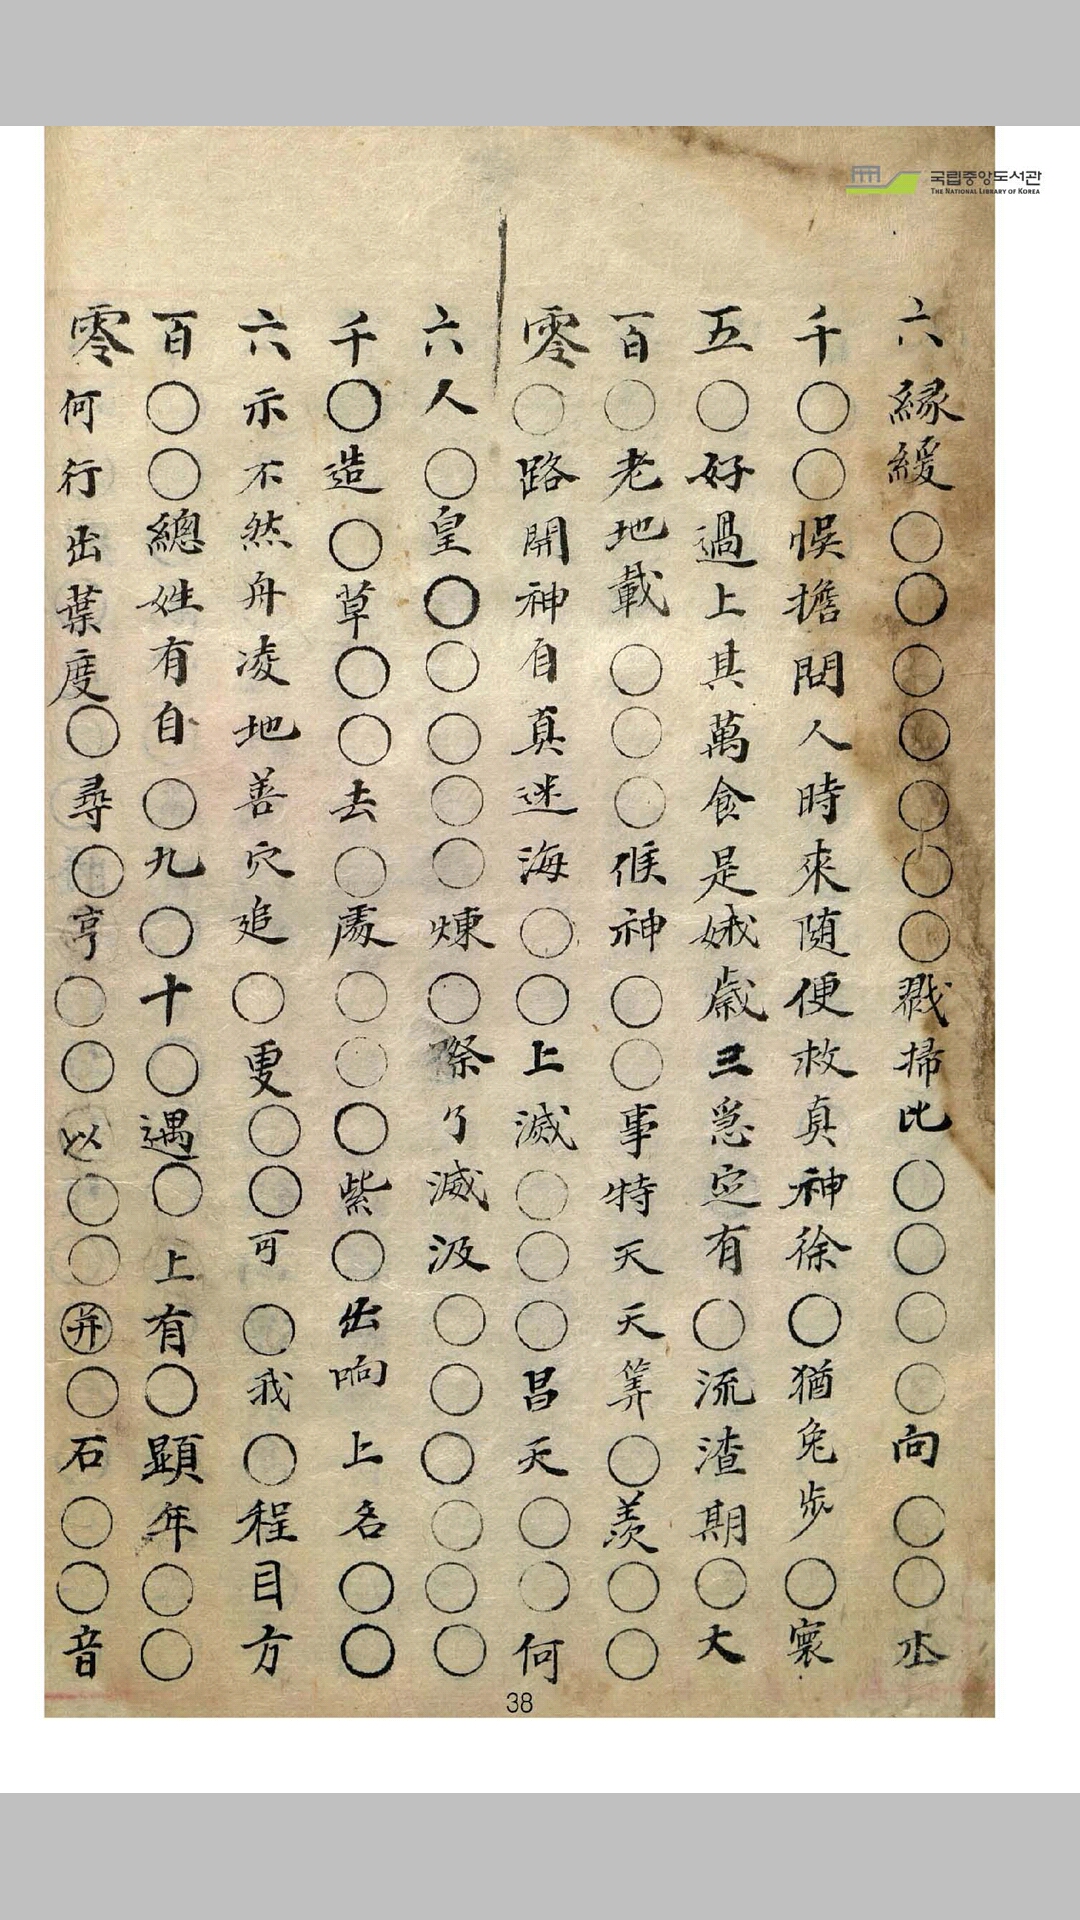 국립중앙도서관
THE NATIONAL LIBRARY OF KOREA
六緣緩○○○○○○○戥掃比○○○○向○○氶
千○○悞擔問人時來随便救真神徐○猶兔步○寰
五○好過上其萬食是娥歲三急定有○流渣期○大
百○老地載○○○候神○○事特天天筭○羨○○
零○路開神自真迷海○○上滅○○○昌天○○何
六人○皇○○○○○煉○際了滅汲○○○○○○
千○造○草○○去○處○○○紫○出响上名○○
六示不然舟凌地善穴追○更○○可○我○程目方
百○○總姓有自○九○十○遇○上有○顕年○○
零何行出葉度○尋○亨○○以○○井○石○○音
38